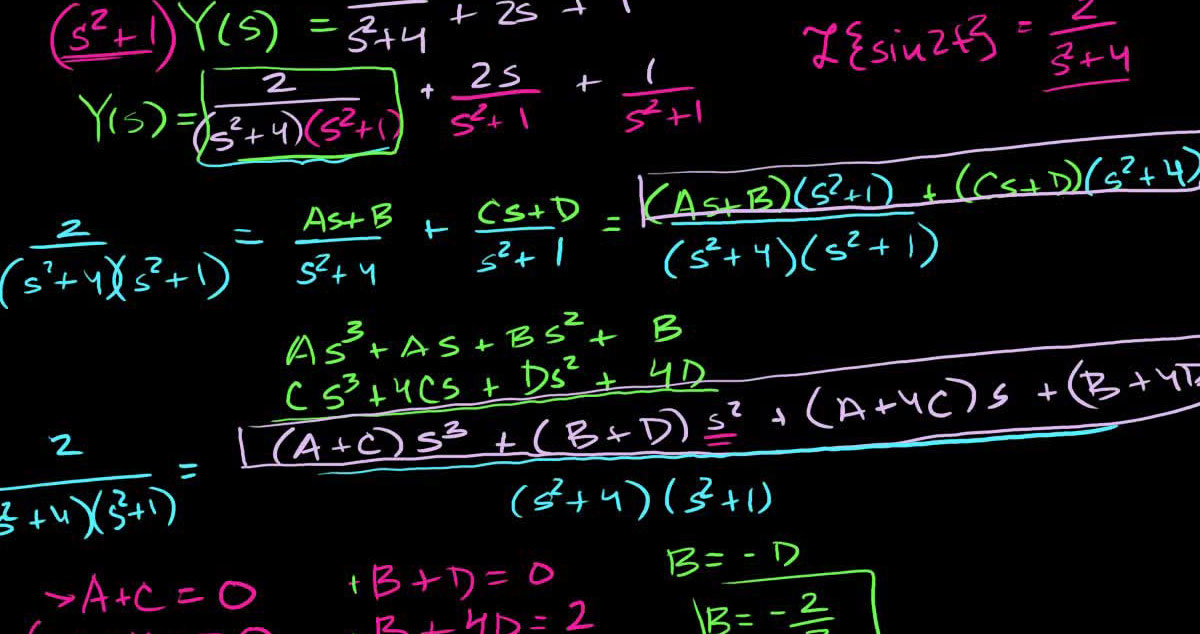 (s²+1) Y(s) = ──/(s²+4) + 2s + 1
ℒ{sin2t} = 2/(s²+4)
Y(s) = 2/((s²+4)(s²+1)) + 2s/(s²+1) + 1/(s²+1)
2/((s²+4)(s²+1)) = (As+B)/(s²+4) + (Cs+D)/(s²+1) = ((As+B)(s²+1) + (Cs+D)(s²+4))/((s²+4)(s²+1))
As³ + As + Bs² + B
Cs³ + 4Cs + Ds² + 4D
2/((s²+4)(s²+1)) = ((A+C)s³ + (B+D)s² + (A+4C)s + (B+4D
(s²+4)(s²+1)
A+C = 0
+B+D = 0
B = -D
B+4D = 2
B = -2/